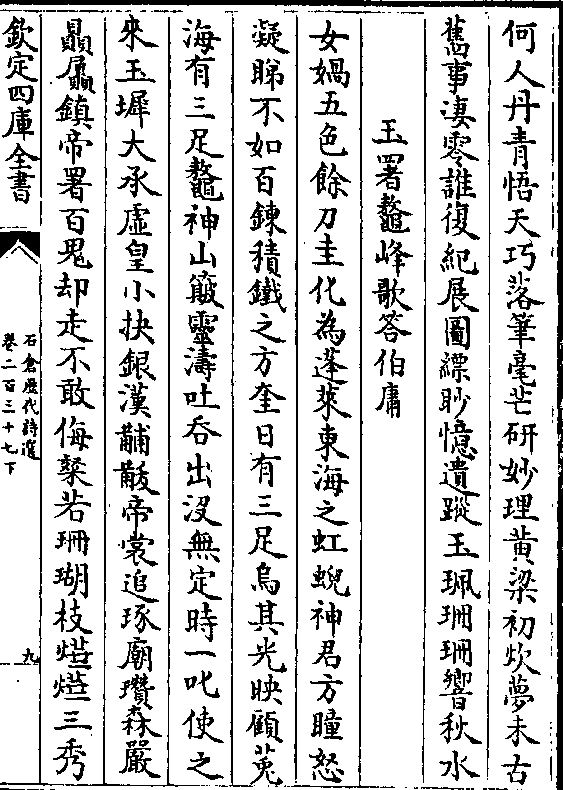 何人丹青悟天巧落筆毫芒研妙理黄粱初炊夢未古
舊事凄零誰復紀展圖縹眇憶遺蹤玉珮珊珊響秋水
玉署鼇峰歌答伯庸
女媧五色餘刀圭化為蓬萊東海之虹蜺神君方瞳怒
凝睇不如百鍊積鐵之方奎日有三足烏其光映顧菟
海有三足鼇神山簸靈濤吐吞出没無定時一叱使之
來玉墀大承虛皇小抉銀漢黼黻帝裳追琢廟瓚森嚴
贔屭鎮帝署百鬼却走不敢侮粲若珊瑚枝熌熌三秀
欽定四庫全書
石倉歷代詩選
卷二百三十七下
九